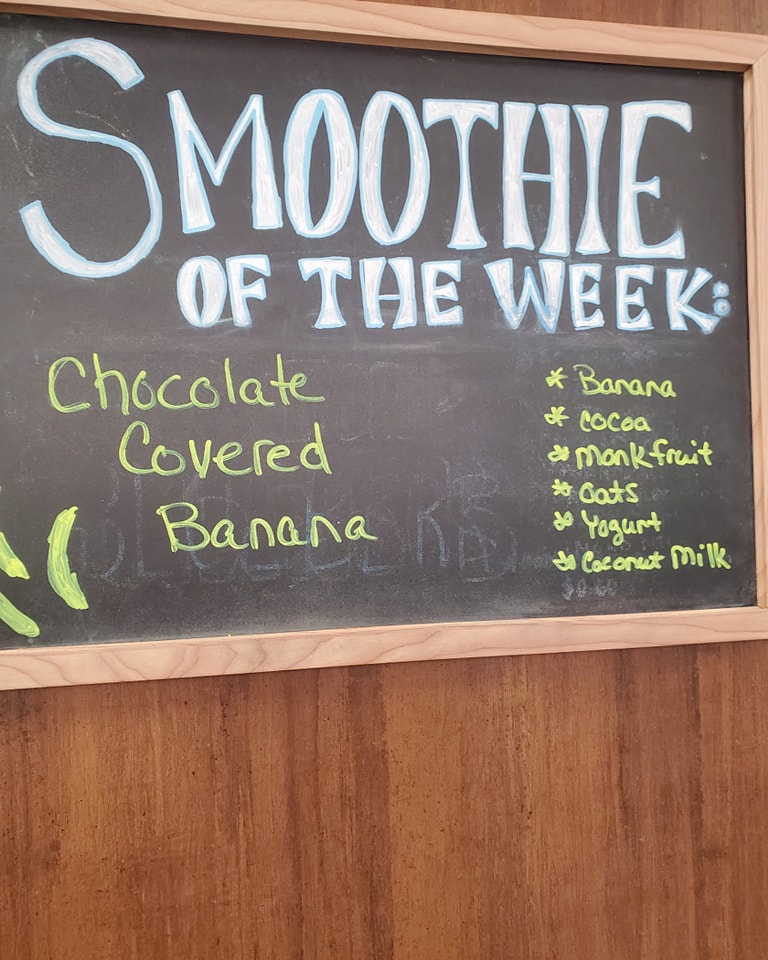 SMOOTHIE
OF THE WEEK:
Chocolate
Covered
Banana
* Banana
* cocoa
* monkfruit
* oats
* Yogurt
* Coconut Milk